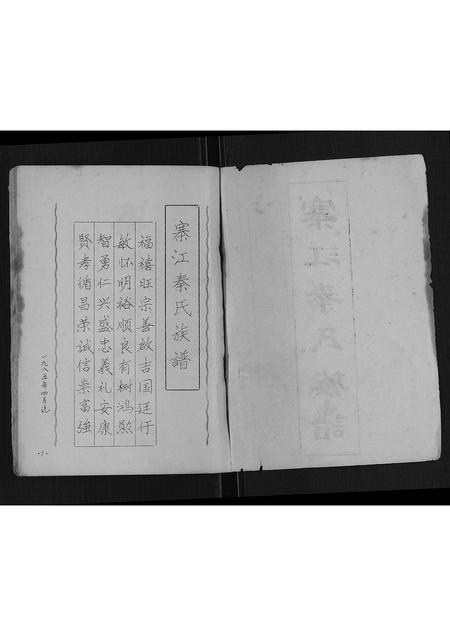 寨江秦氏族譜
寨江秦氏族譜
福禧旺宗善啟吉国廷仟
敏怀明裕顺良有树鸿勲
智勇仁兴盛忠義礼安康
賢孝循昌荣誠信崇富強
一九八五年四月
1